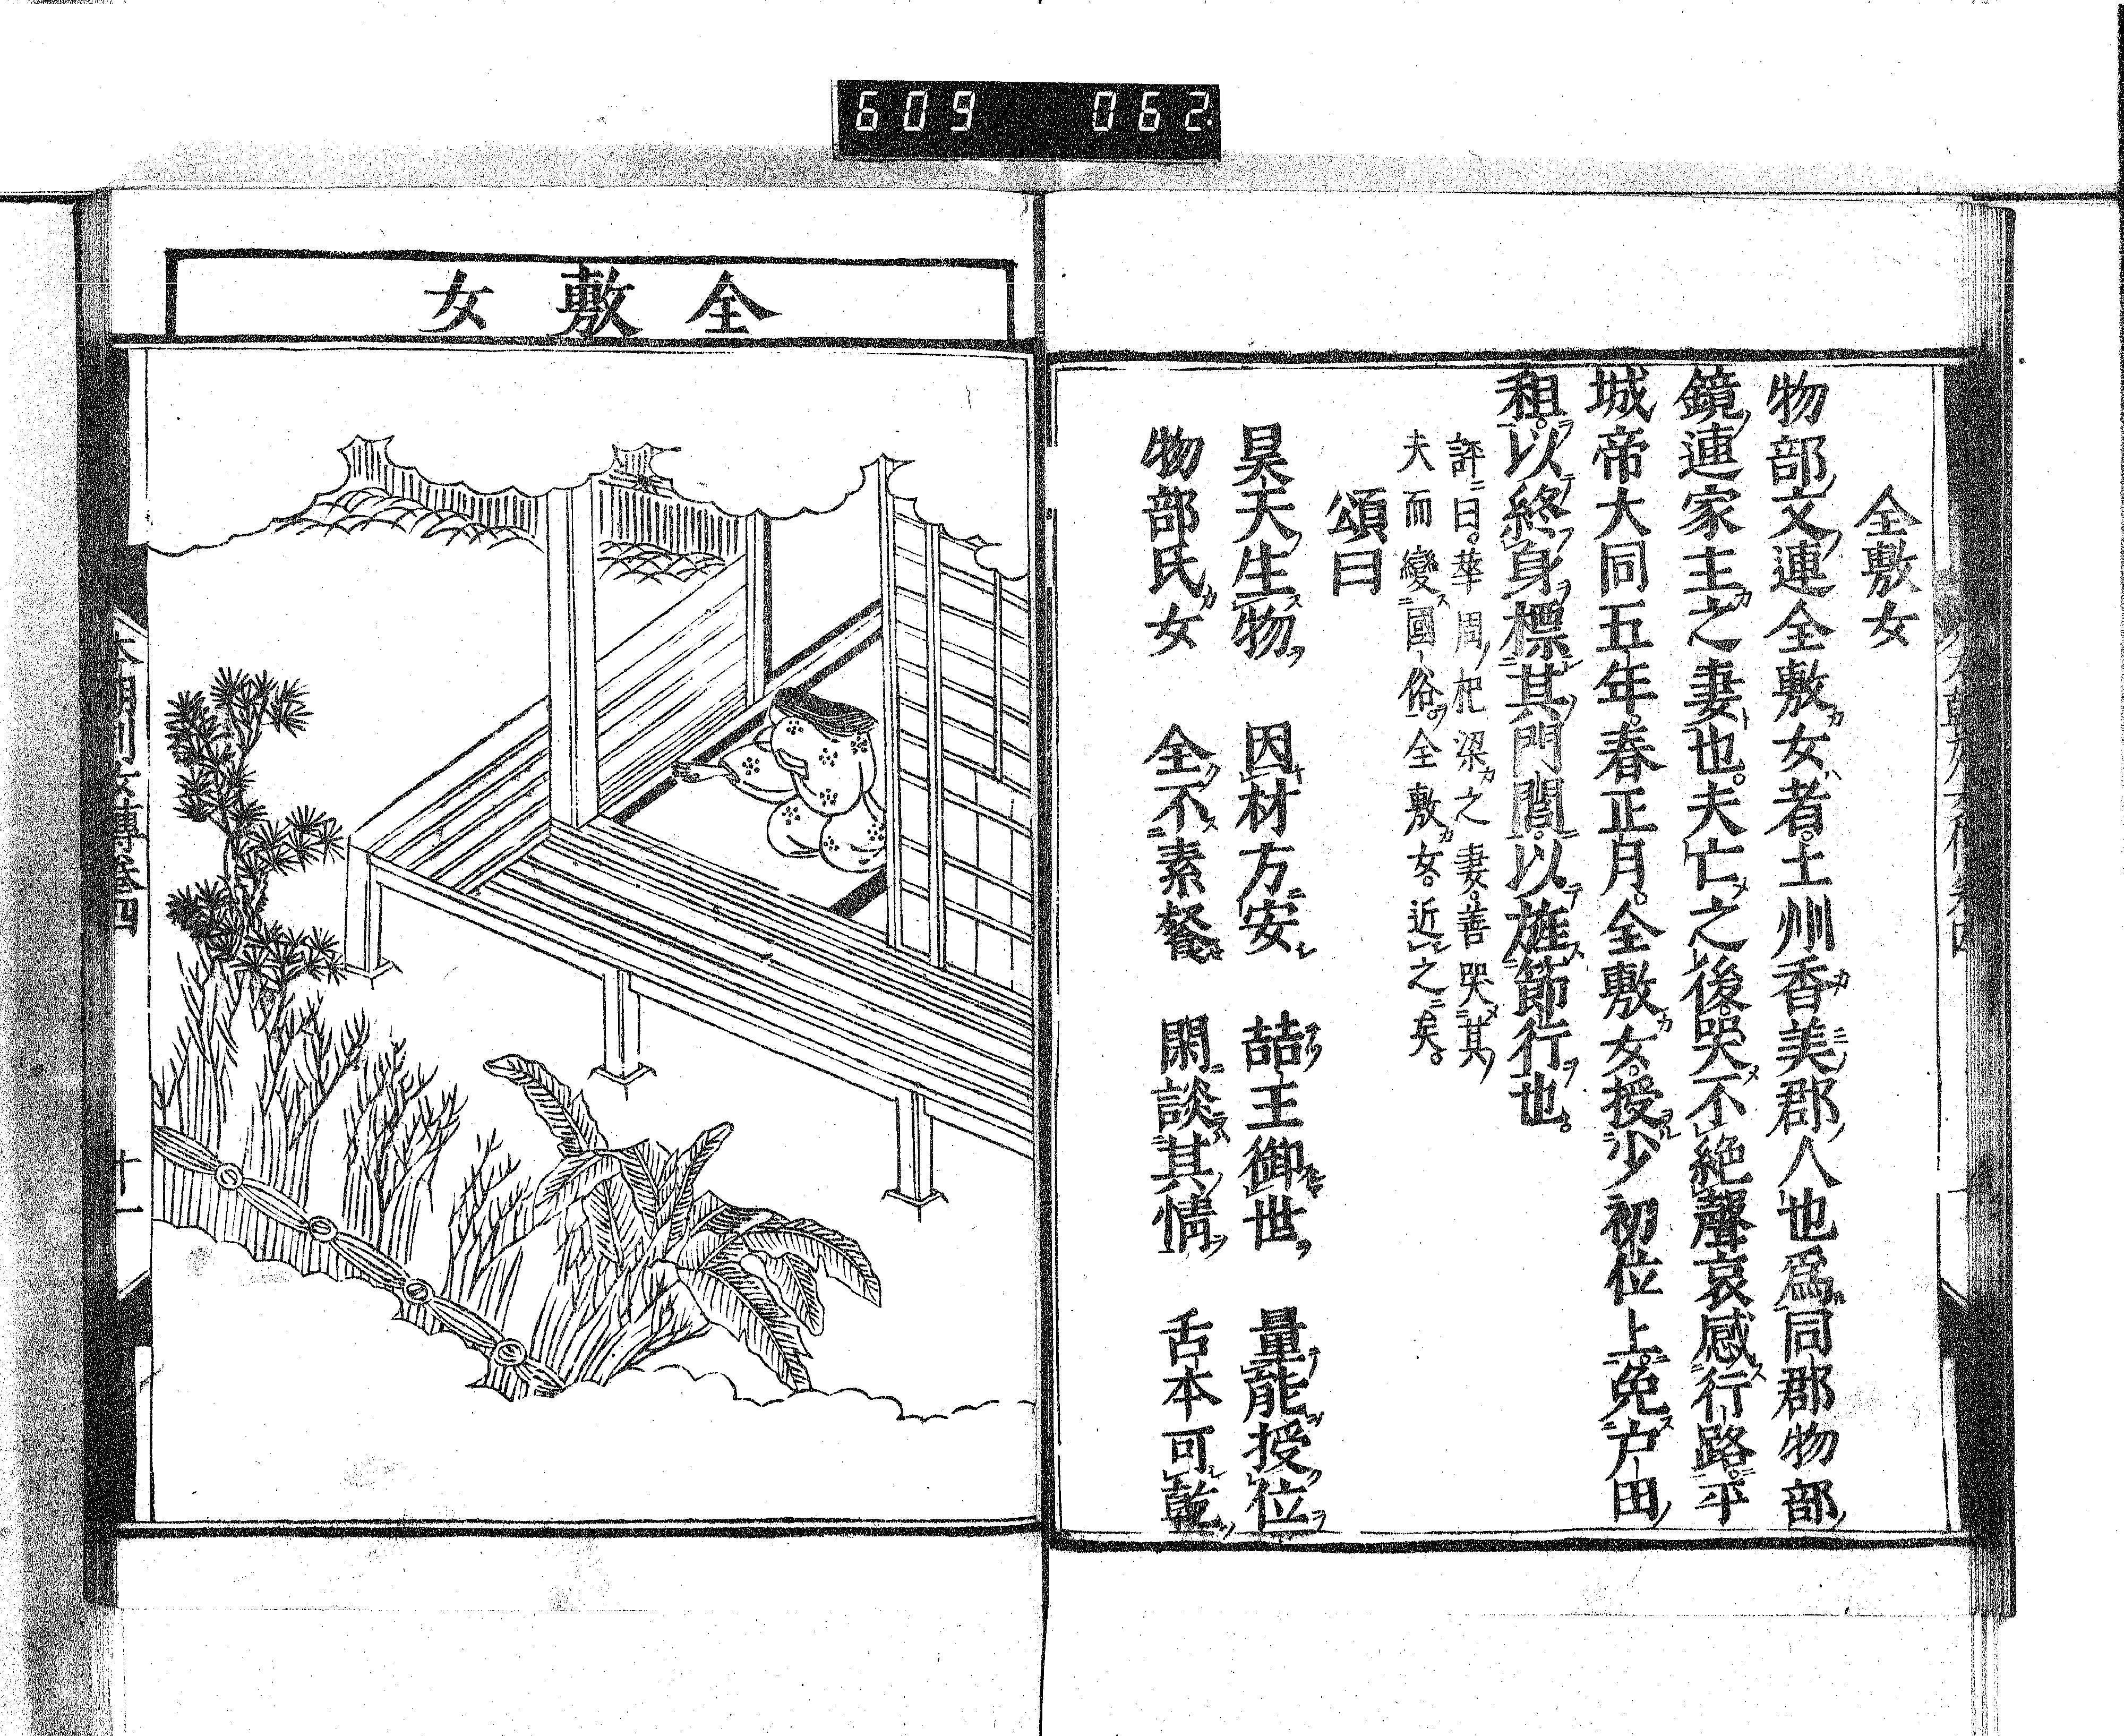 609 062
全敷女
物部文連全敷女者。土州香美郡人也爲同郡物部
鏡連家主之妻也。夫亡之後。哭不絶聲哀感行路。平
城帝大同五年。春正月。全敷女。授少初位上。免戸田
租。以終身標其門閭。以旌節行也。
評曰。華周杞梁之妻。善哭其
夫而變國俗。全敷女。近之矣。
頌曰
昊天生物 因材方安 喆王御世 量能授位
物部氏女 全不素餐 閑談其情 舌本可乾
全敷女
本朝列女傳卷四 十一